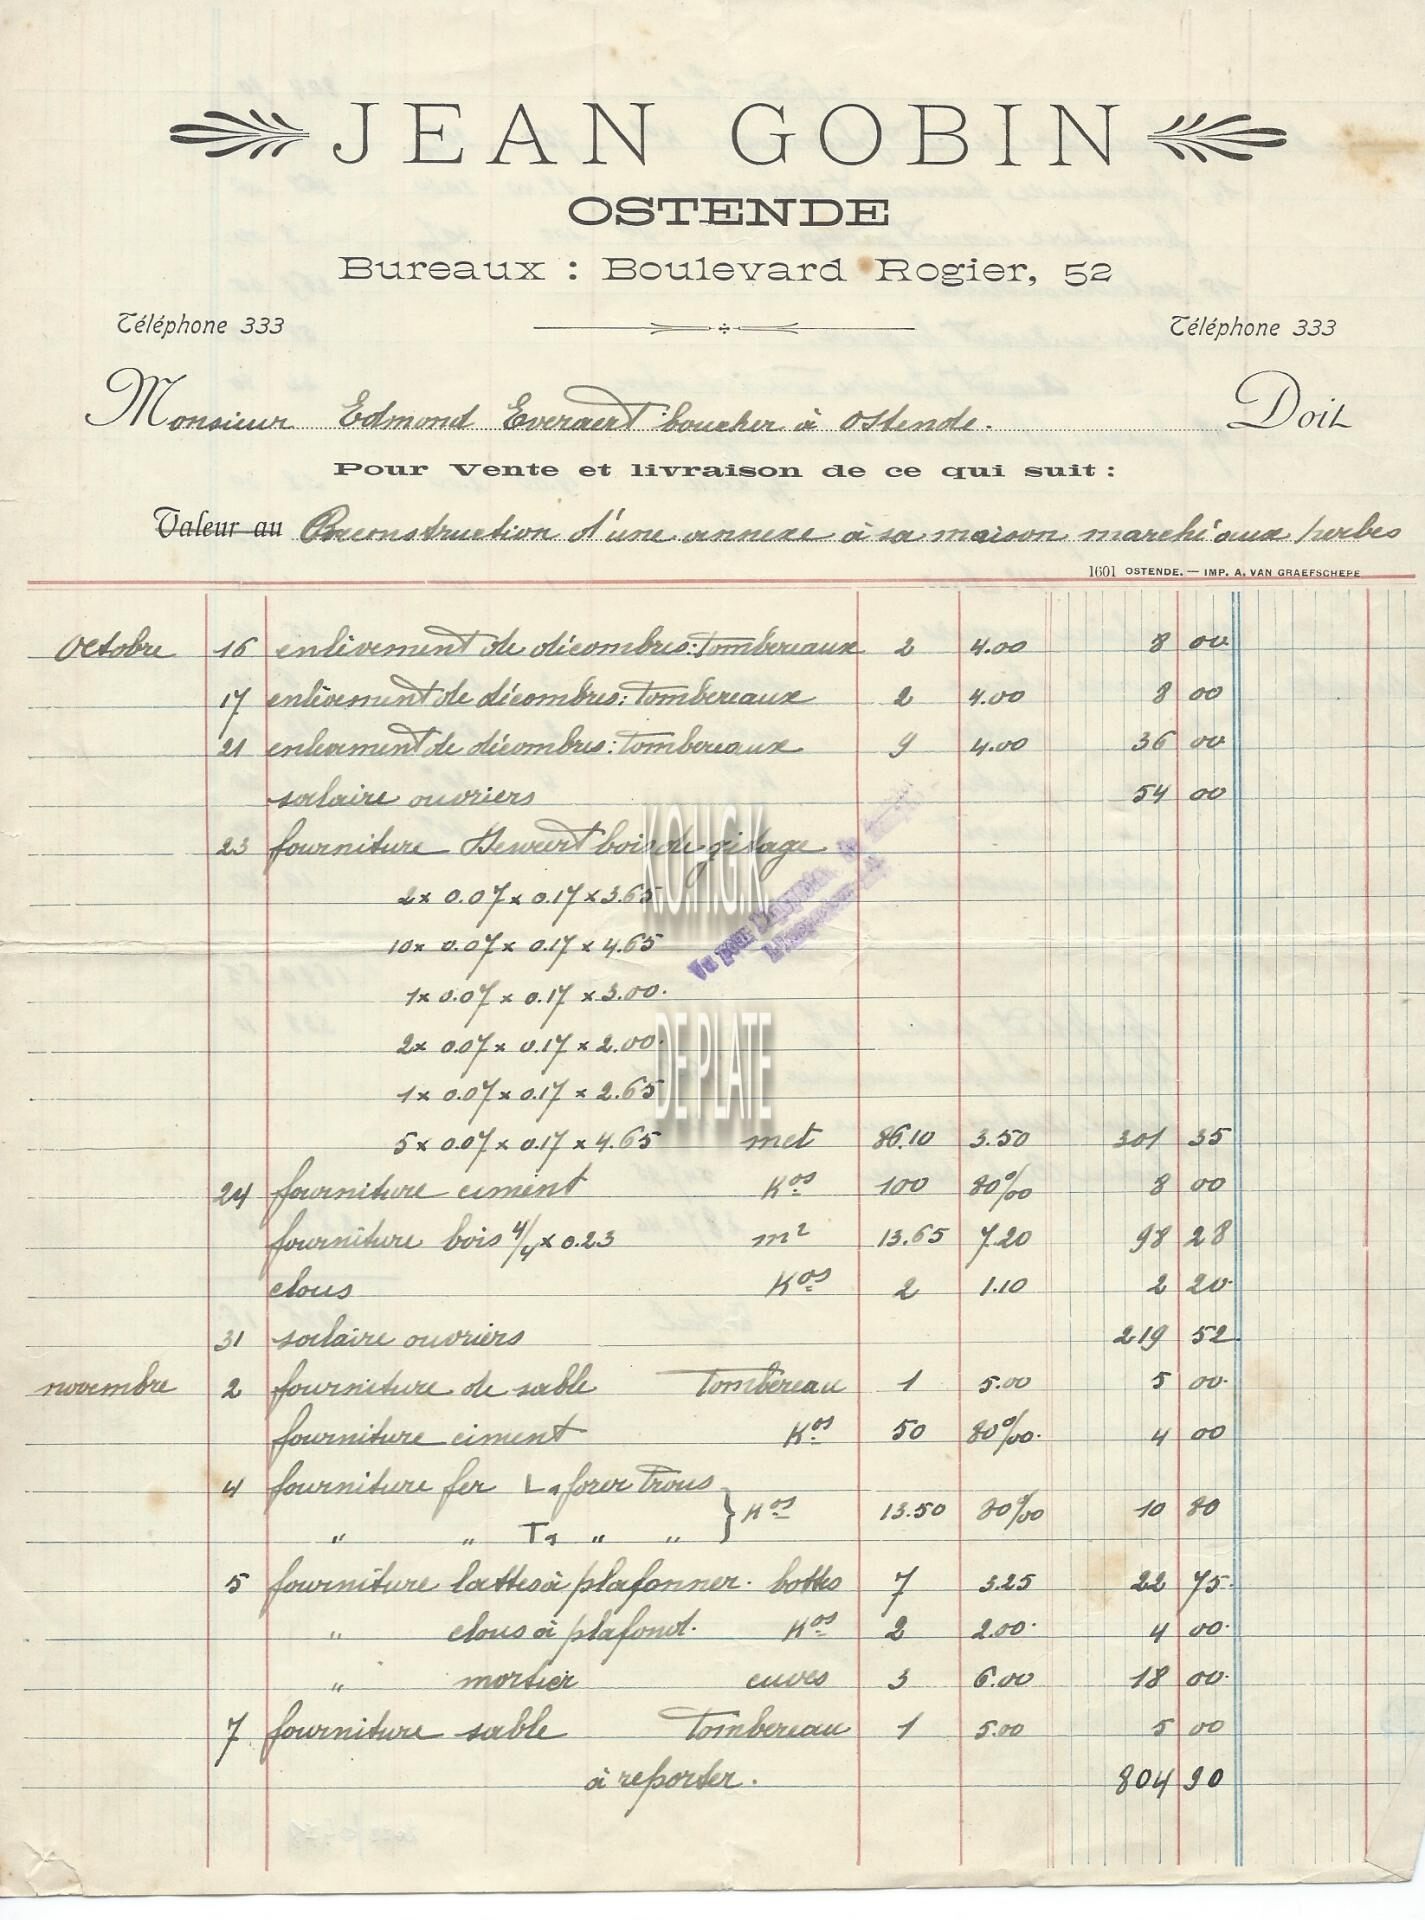 JEAN GOBIN
OSTENDE
Bureaux : Boulevard Rogier, 52
Téléphone 333 Téléphone 333
Monsieur Edmond Everaert boucher à Ostende. Doit
Pour Vente et livraison de ce qui suit :
Valeur au Reconstruction d'une annexe à sa maison marché aux herbes
1601 OSTENDE. — IMP. A. VAN GRAEFSCHEPE
Octobre 16 enlèvement de décombres: tombereaux 2 4.00 8 00
17 enlèvement de décombres: tombereaux 2 4.00 8 00
21 enlèvement de décombres: tombereaux 9 4.00 36 00
salaire ouvriers 54 00
23 fourniture bois de gitage
2 x 0.07 x 0.17 x 3.65
10 x 0.07 x 0.17 x 4.65
1 x 0.07 x 0.17 x 3.00.
2 x 0.07 x 0.17 x 2.00.
1 x 0.07 x 0.17 x 2.65
5 x 0.07 x 0.17 x 4.65 met 86.10 3.50 301 35
24 fourniture ciment Kos 100 80%0 8 00
fourniture bois 4/4 x 0.23 m2 13.65 7.20 98 28
clous Kos 2 1.10 2 20
31 salaire ouvriers 219 52
novembre 2 fourniture de sable tombereau 1 5.00 5 00
fourniture ciment Kos 50 80%0 4 00
4 fourniture fer L forer trous } Kos 13.50 80%0 10 80
" " T " "
5 fourniture lattes à plafonner. bottes 7 3.25 22 75
" clous à plafond. Kos 2 2.00 4 00
" mortier cuves 3 6.00 18 00
7 fourniture sable tombereau 1 5.00 5 00
à reporter. 804 90
KO.H.G.K.
DE PLATE
Vu pour